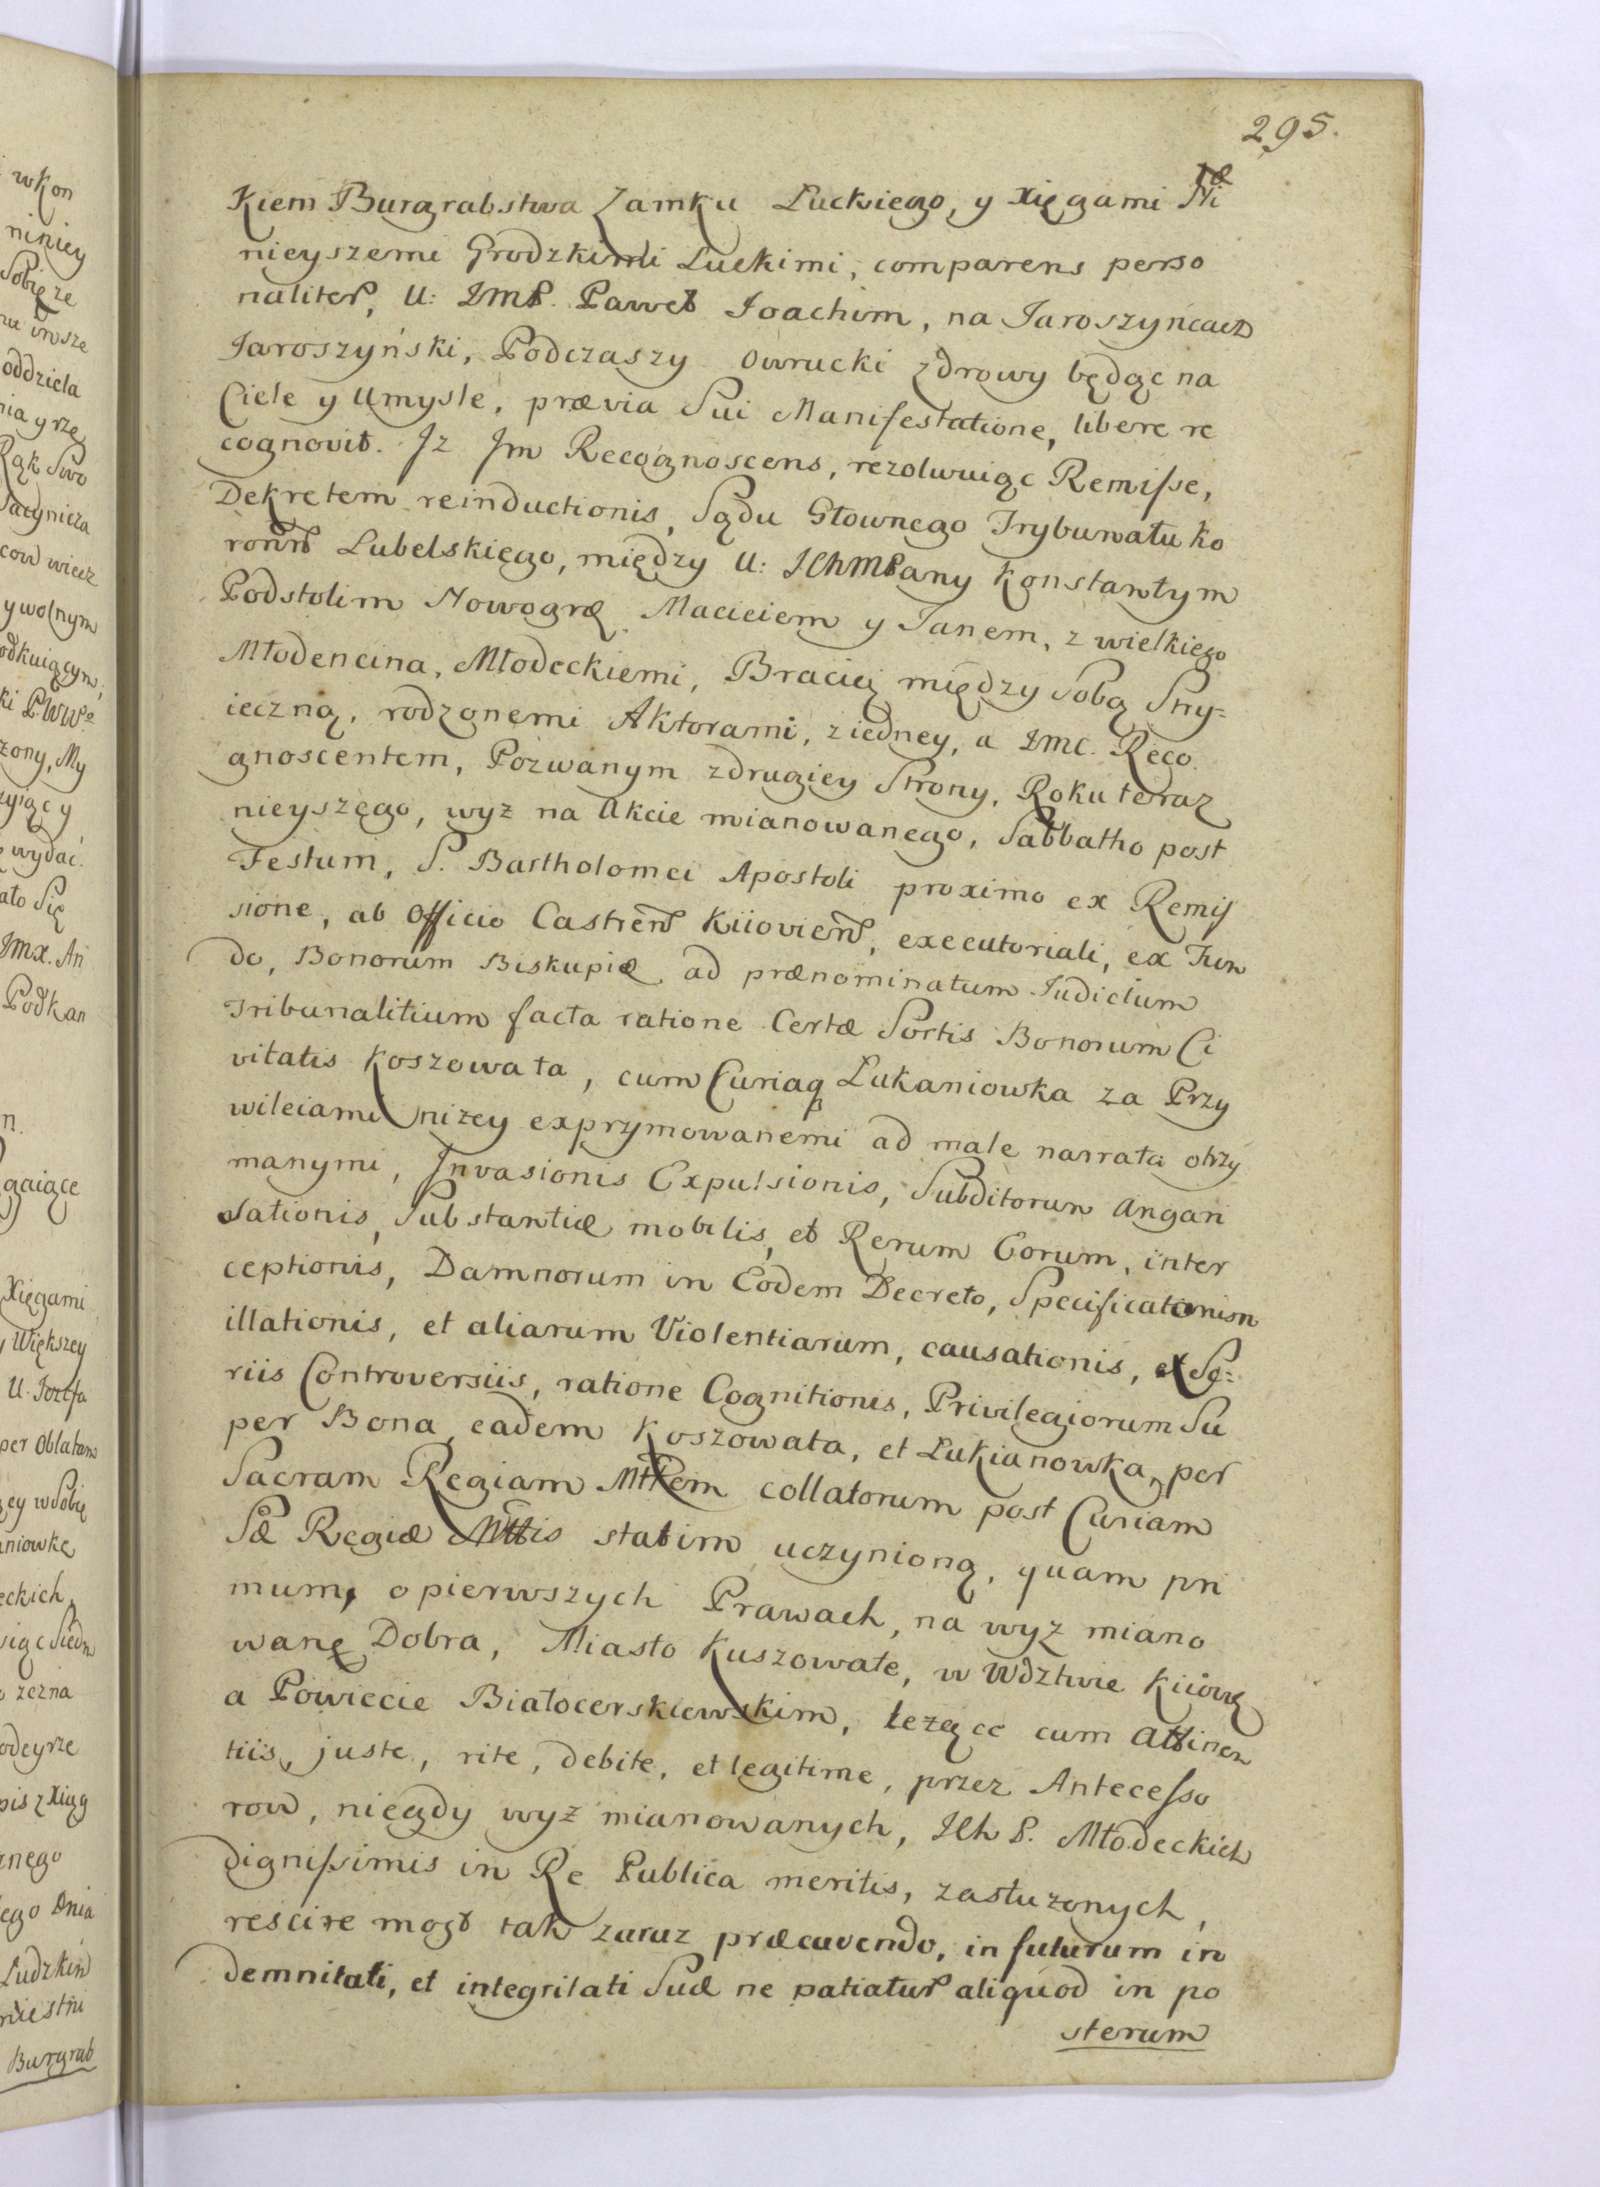 295.
Kiem Burgrabstwa Zamku Luckiego, y Xięgami Ni
nieyszemi Grodzkimi Luckimi, comparens perso
naliter, U: JMP. Paweł Joachim, na Jaroszyńcach
Jaroszyński, Podczaszy Owrucki zdrowy będąc na
Ciele y Umysle, prævia Sui Manifestatione, libere re
cognovit. Jz Jm Recognoscens, rezolwuiąc Remisse,
Dekretem reinductionis, Sądu Głownego Trybunału ko
ronn Lubelskiego, między U: JChMPany Konstantym
Podstolim Nowogr Macieiem y Janem, z wielkiego
Młodencina, Młodeckiemi, Bracią między Sobą Stry=
ieczną, rodzonemi Aktorami, z iedney, a JMC. Reco.
gnoscentem, Pozwanym z drugiey Strony, Roku teraz
nieyszego, wyz na Akcie mianowanego, Sabbatho post
Festum, S. Bartholomei Apostoli proximo ex Remis
sione, ab Officio Castren Kiiovien, executoriali, ex Fun
do, Bonorum Biskupiæ, ad prænominatum Judicium
Tribunalitium facta ratione Certæ Sortis Bonorum Ci
vitatis Koszowata, cum Curiaq Lukaniowka za Przy
wileiami nizey exprymowanemi ad male narrata otrzy
manymi, Invasionis Expulsionis, Subditorum Angari
sationis, Substantiæ mobilis, et Rerum Eorum, inter
ceptionis, Damnorum in Eodem Decreto, Specificationism
illationis, et aliarum Violentiarum, causationis, ex Se=
riis Controversiis, ratione Cognitionis, Privilegiorum Su
per Bona eadem Koszowata, et Lukianowka, per
Sacram Regiam Mttem collatorum post Curiam
Sæ Regiæ Mttis statim uczynioną, quam pri
mum, o pierwszych Prawach, na wyz miano
wane Dobra, Miasto Kuszowate, w Wdztwie Kiiow
a Powiecie Białocerskiewskim, lezące cum Attinen
tiis, juste, rite, debite, et legitime, przez Antecesso
row, niegdy wyz mianowanych, JCh P. Młodeckich
dignissimis in Re Publica meritis, zasłuzonych,
rescire mogł tak zaraz præcavendo, in futurum in
demnitati, et integritati Suæ ne patiatur aliquod in po
sterum